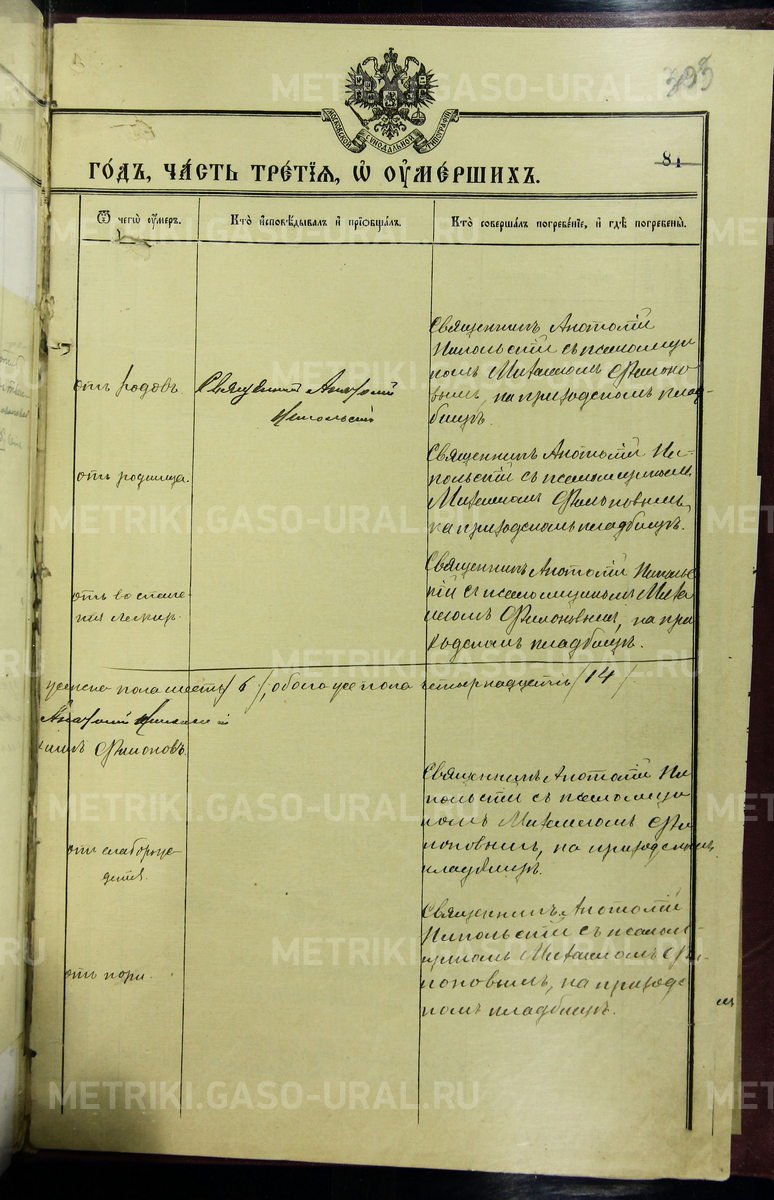 393
МОСКОВСКОЙ СѴНОДАЛЬНОЙ ТИПОГРАФІИ
81
ГО́ДЪ, ЧА́СТЬ ТРЕ́ТІѦ, Ѡ҆ ОУ҆МЕ́РШИХЪ.
Ѿ чегѡ̀ ᲂу҆́меръ.
Кто̀ и҆сповѣ́дывалъ и҆ прїѡбща́лъ.
Кто̀ соверша́лъ погребе́нїе, и҆ гдѣ̀ погребены̀.
отъ родовъ.
Священникъ Анатолій
Никольскій
Священникъ Анатолій
Никольскій съ псаломщи
комъ Михаиломъ Филоно
вымъ, на приходскомъ клад-
бищѣ.
отъ родимца.
Священникъ Анатолій Ни-
кольскій съ псаломщикомъ
Михаиломъ Филоновымъ,
на приходскомъ кладбищѣ.
отъ воспале-
нія легкихъ.
Священникъ Анатолій Никольс
кій съ псаломщикомъ Миха
иломъ Филоновымъ, на при
ходскомъ кладбищѣ.
женска пола шесть /6/, обоего же пола четырнадцать /14/
Анатолій Никольскій
Филоновъ.
отъ слаборож-
денія.
Священникъ Анатолій Ни
кольскій съ псаломщи
комъ Михаиломъ Фи
лоновымъ, на приходскомъ
кладбищѣ.
отъ кори.
Священникъ Анатолій
Никольскій съ псалом-
щикомъ Михаиломъ Фи-
лоновымъ, на приходс
комъ кладбищѣ.
METRIKI.GASO-URAL.RU